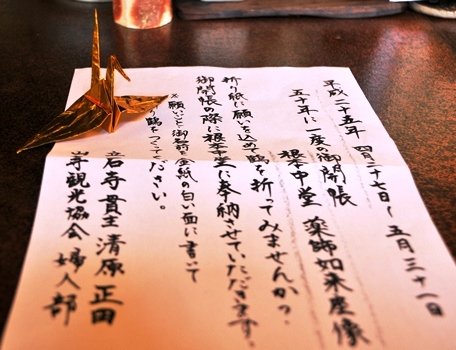 平成二十五年 四月二十七日〜五月三十一日
五十年に一度の御開帳
根本中堂 薬師如来座像
折り紙に願いを込めて鶴を折ってみませんか?
御開帳の際に根本中堂に奉納させていただきます。
※願いごと御名前を金紙の白い面に書いて
鶴をつくってください。
立石寺貫主 清原正田
山寺観光協会 婦人部